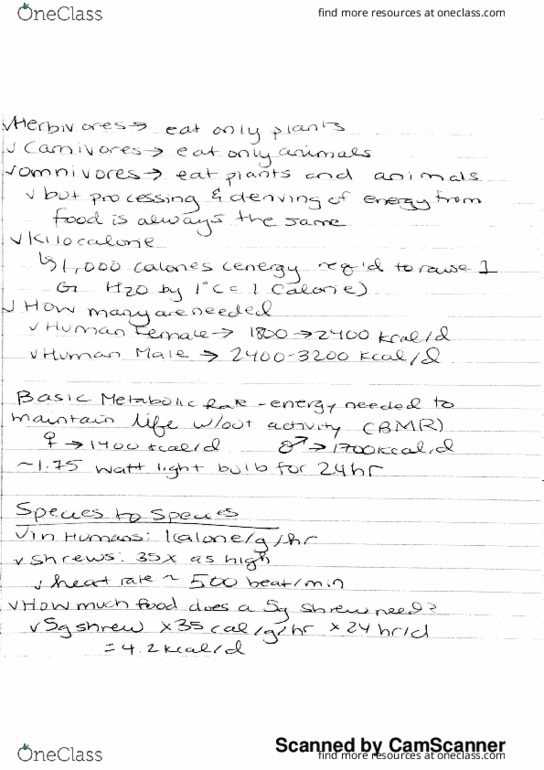 OneClass
find more resources at oneclass.com
✓Herbivores → eat only plants
✓ Carnivores → eat only animals
✓omnivores → eat plants and animals
✓ but processing & deriving of energy from
food is always the same
✓ Kilocalorie
↳ 1,000 calories (energy req'd to raise 1
G H2O by 1°C = 1 Calorie)
✓ How many are needed
✓ Human Female → 1800 → 2400 kcal/d
✓ Human Male → 2400-3200 Kcal/d
Basic Metabolic Rate - energy needed to
maintain life w/out activity (BMR)
♀ → 1400 kcal/d ♂ → 1700 kcal/d
~1.75 watt light bulb for 24hr
Species to Species
✓in Humans: 1calorie/g/hr
✓ shrews: 35x as high
✓ heart rate ~ 500 beat/min
✓ How much food does a 5g shrew need?
✓ 5g shrew x 35 cal/g/hr x 24 hr/d
= 4.2 kcal/d
Scanned by CamScanner
OneClass
find more resources at oneclass.com